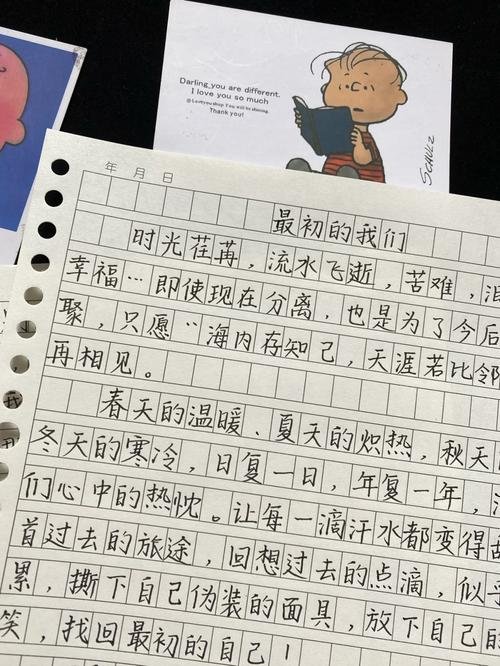 Darling, you are different.
I love you so much
@Loveyoushop You will be shining.
Thank you!
SCHULZ
年 月 日
最初的我们
时光荏苒，流水飞逝，苦难，泪
幸福…即使现在分离，也是为了今后
聚，只愿“海内存知己，天涯若比邻
再相见。
春天的温暖、夏天的炽热，秋天
冬天的寒冷，日复一日，年复一年，
们心中的热忱。让每一滴汗水都变得
首过去的旅途，回想过去的点滴，似乎
累，撕下自己伪装的面具，放下自己的
笑，找回最初的自己！